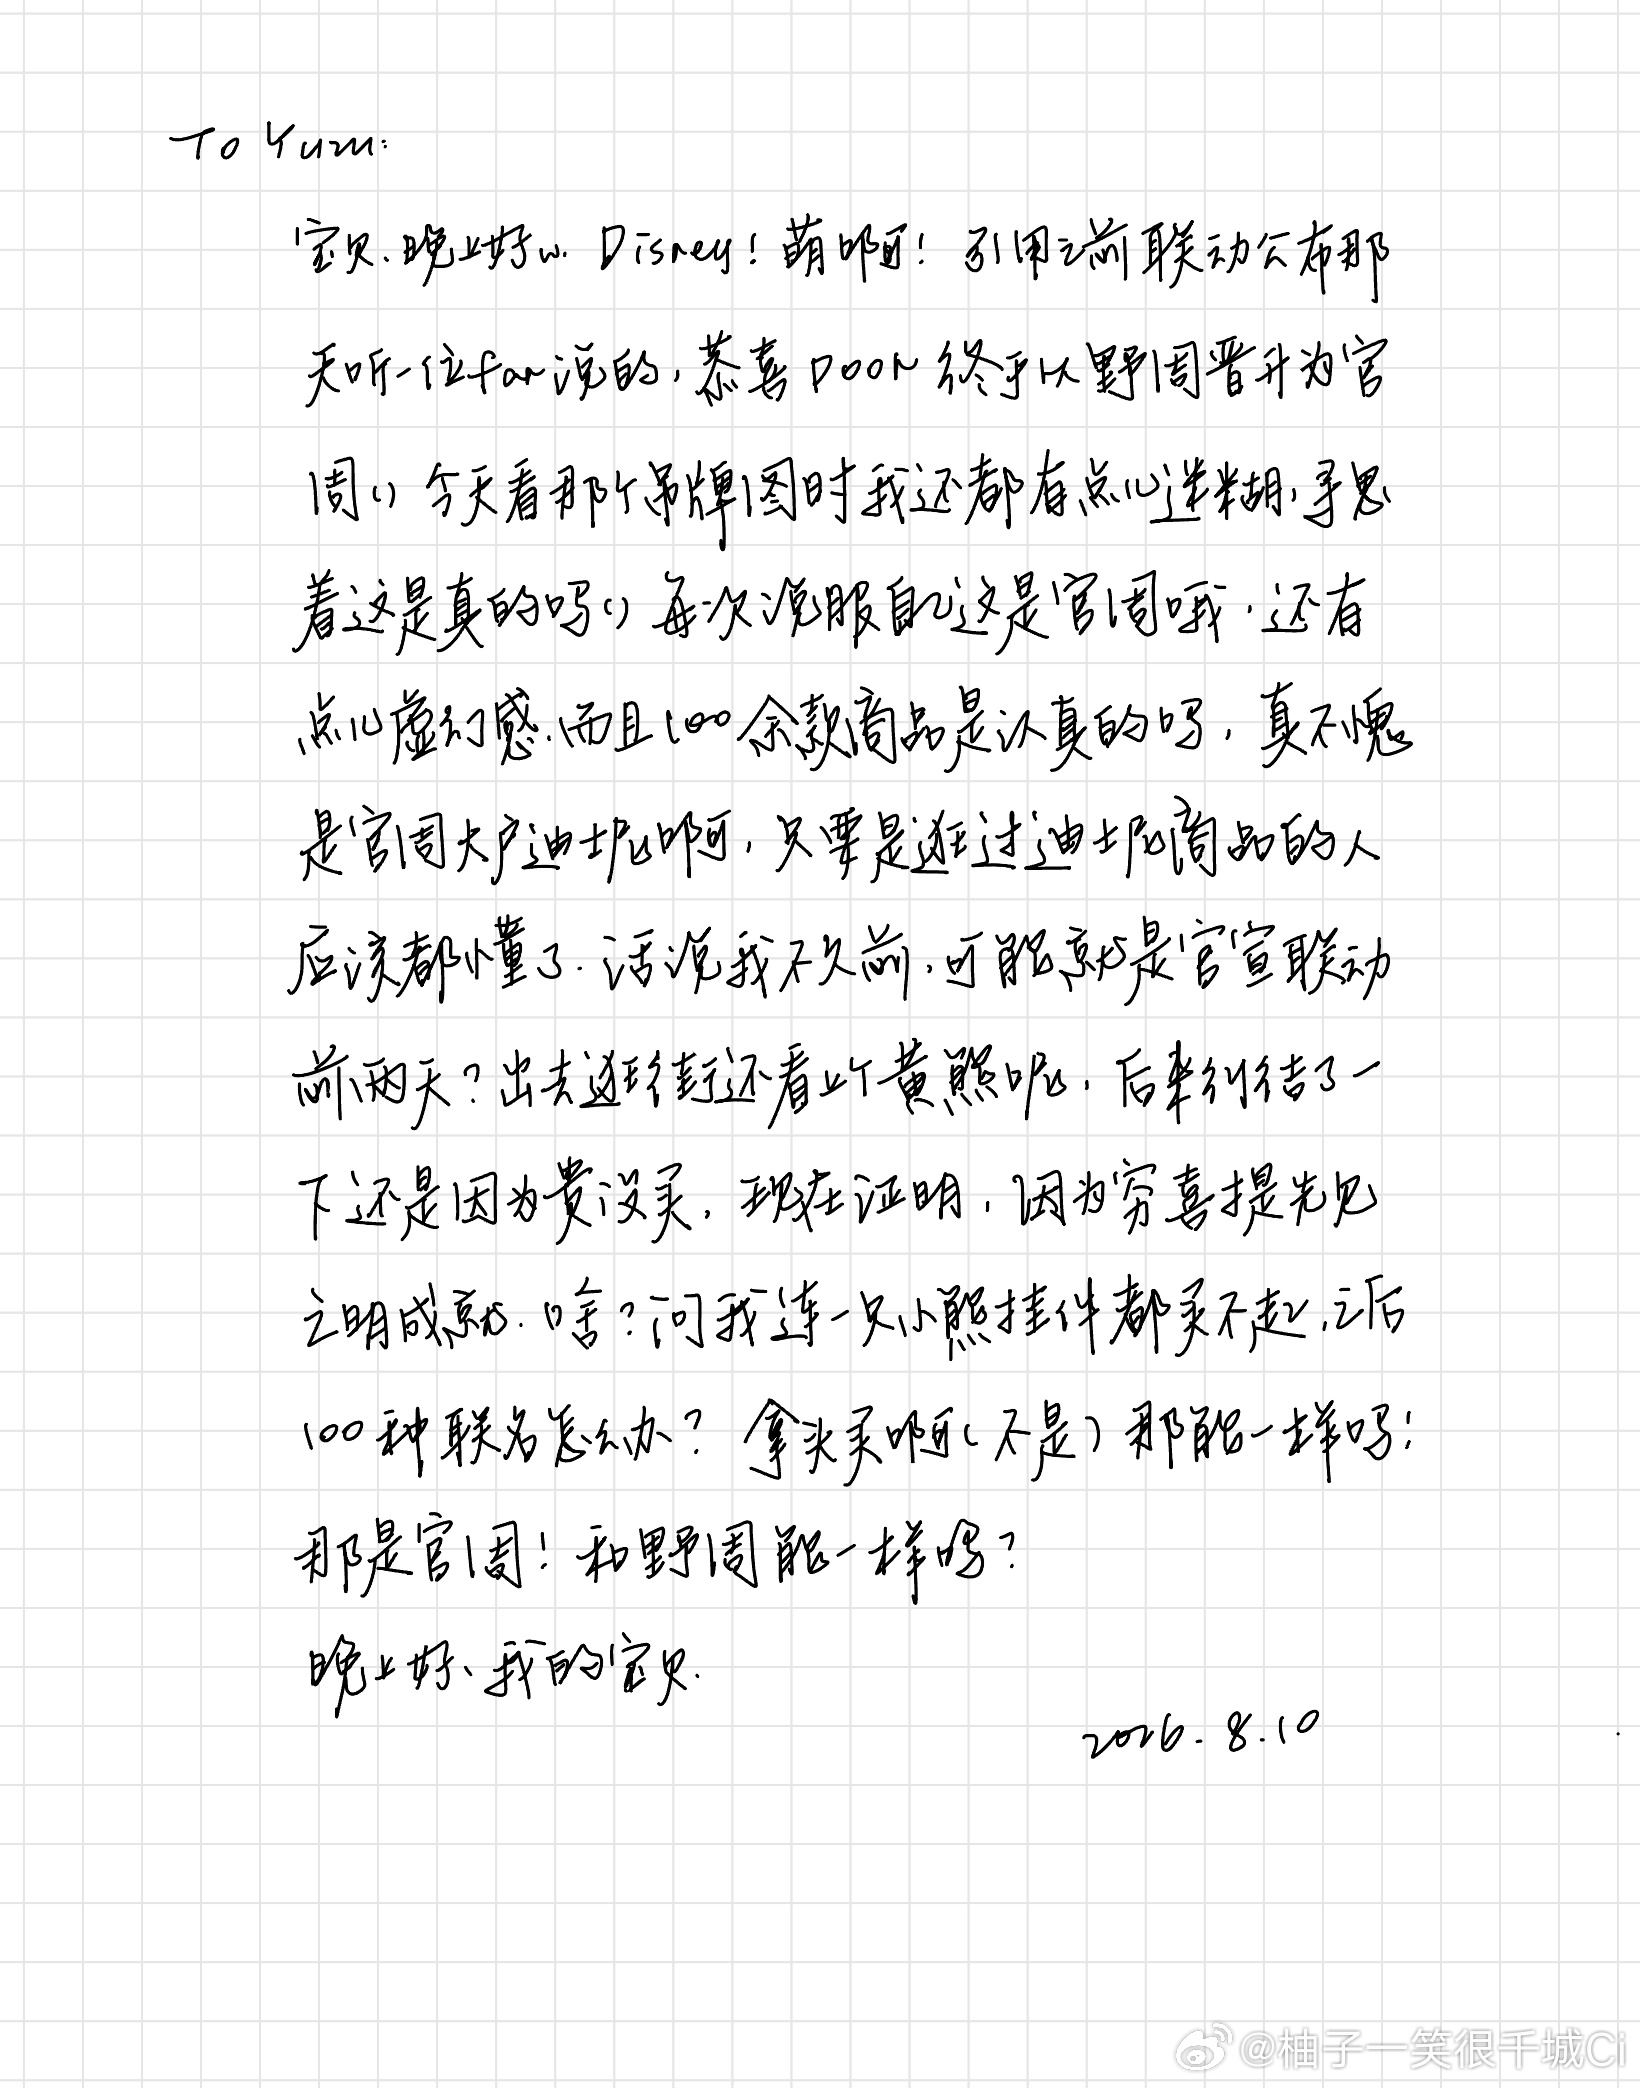 To Yuzu:
宝贝、晚上好w. Disney！萌啊！引用之前联动公布那
天听一位fan说的，恭喜POOH终于从野周晋升为官
周()今天看那个吊牌图时我还都有点儿迷糊，寻思
着这是真的吗()每次说服自己这是官周哦，还有
点儿虚幻感.而且100余款商品是认真的吗，真不愧
是官周大户迪士尼啊，只要是逛过迪士尼商品的人
应该都懂了.话说我不久前，可能就是官宣联动
前两天？出去逛街还看上个黄熊呢，后来纠结了一
下还是因为贵没买，现在证明，因为穷喜提先见
之明成就.啥？问我连一只小熊挂件都买不起，之后
100种联名怎么办？拿头买啊（不是）那能一样吗！
那是官周！和野周能一样吗？
晚上好、我的宝贝.
2026.8.10
@柚子一笑很千城Ci